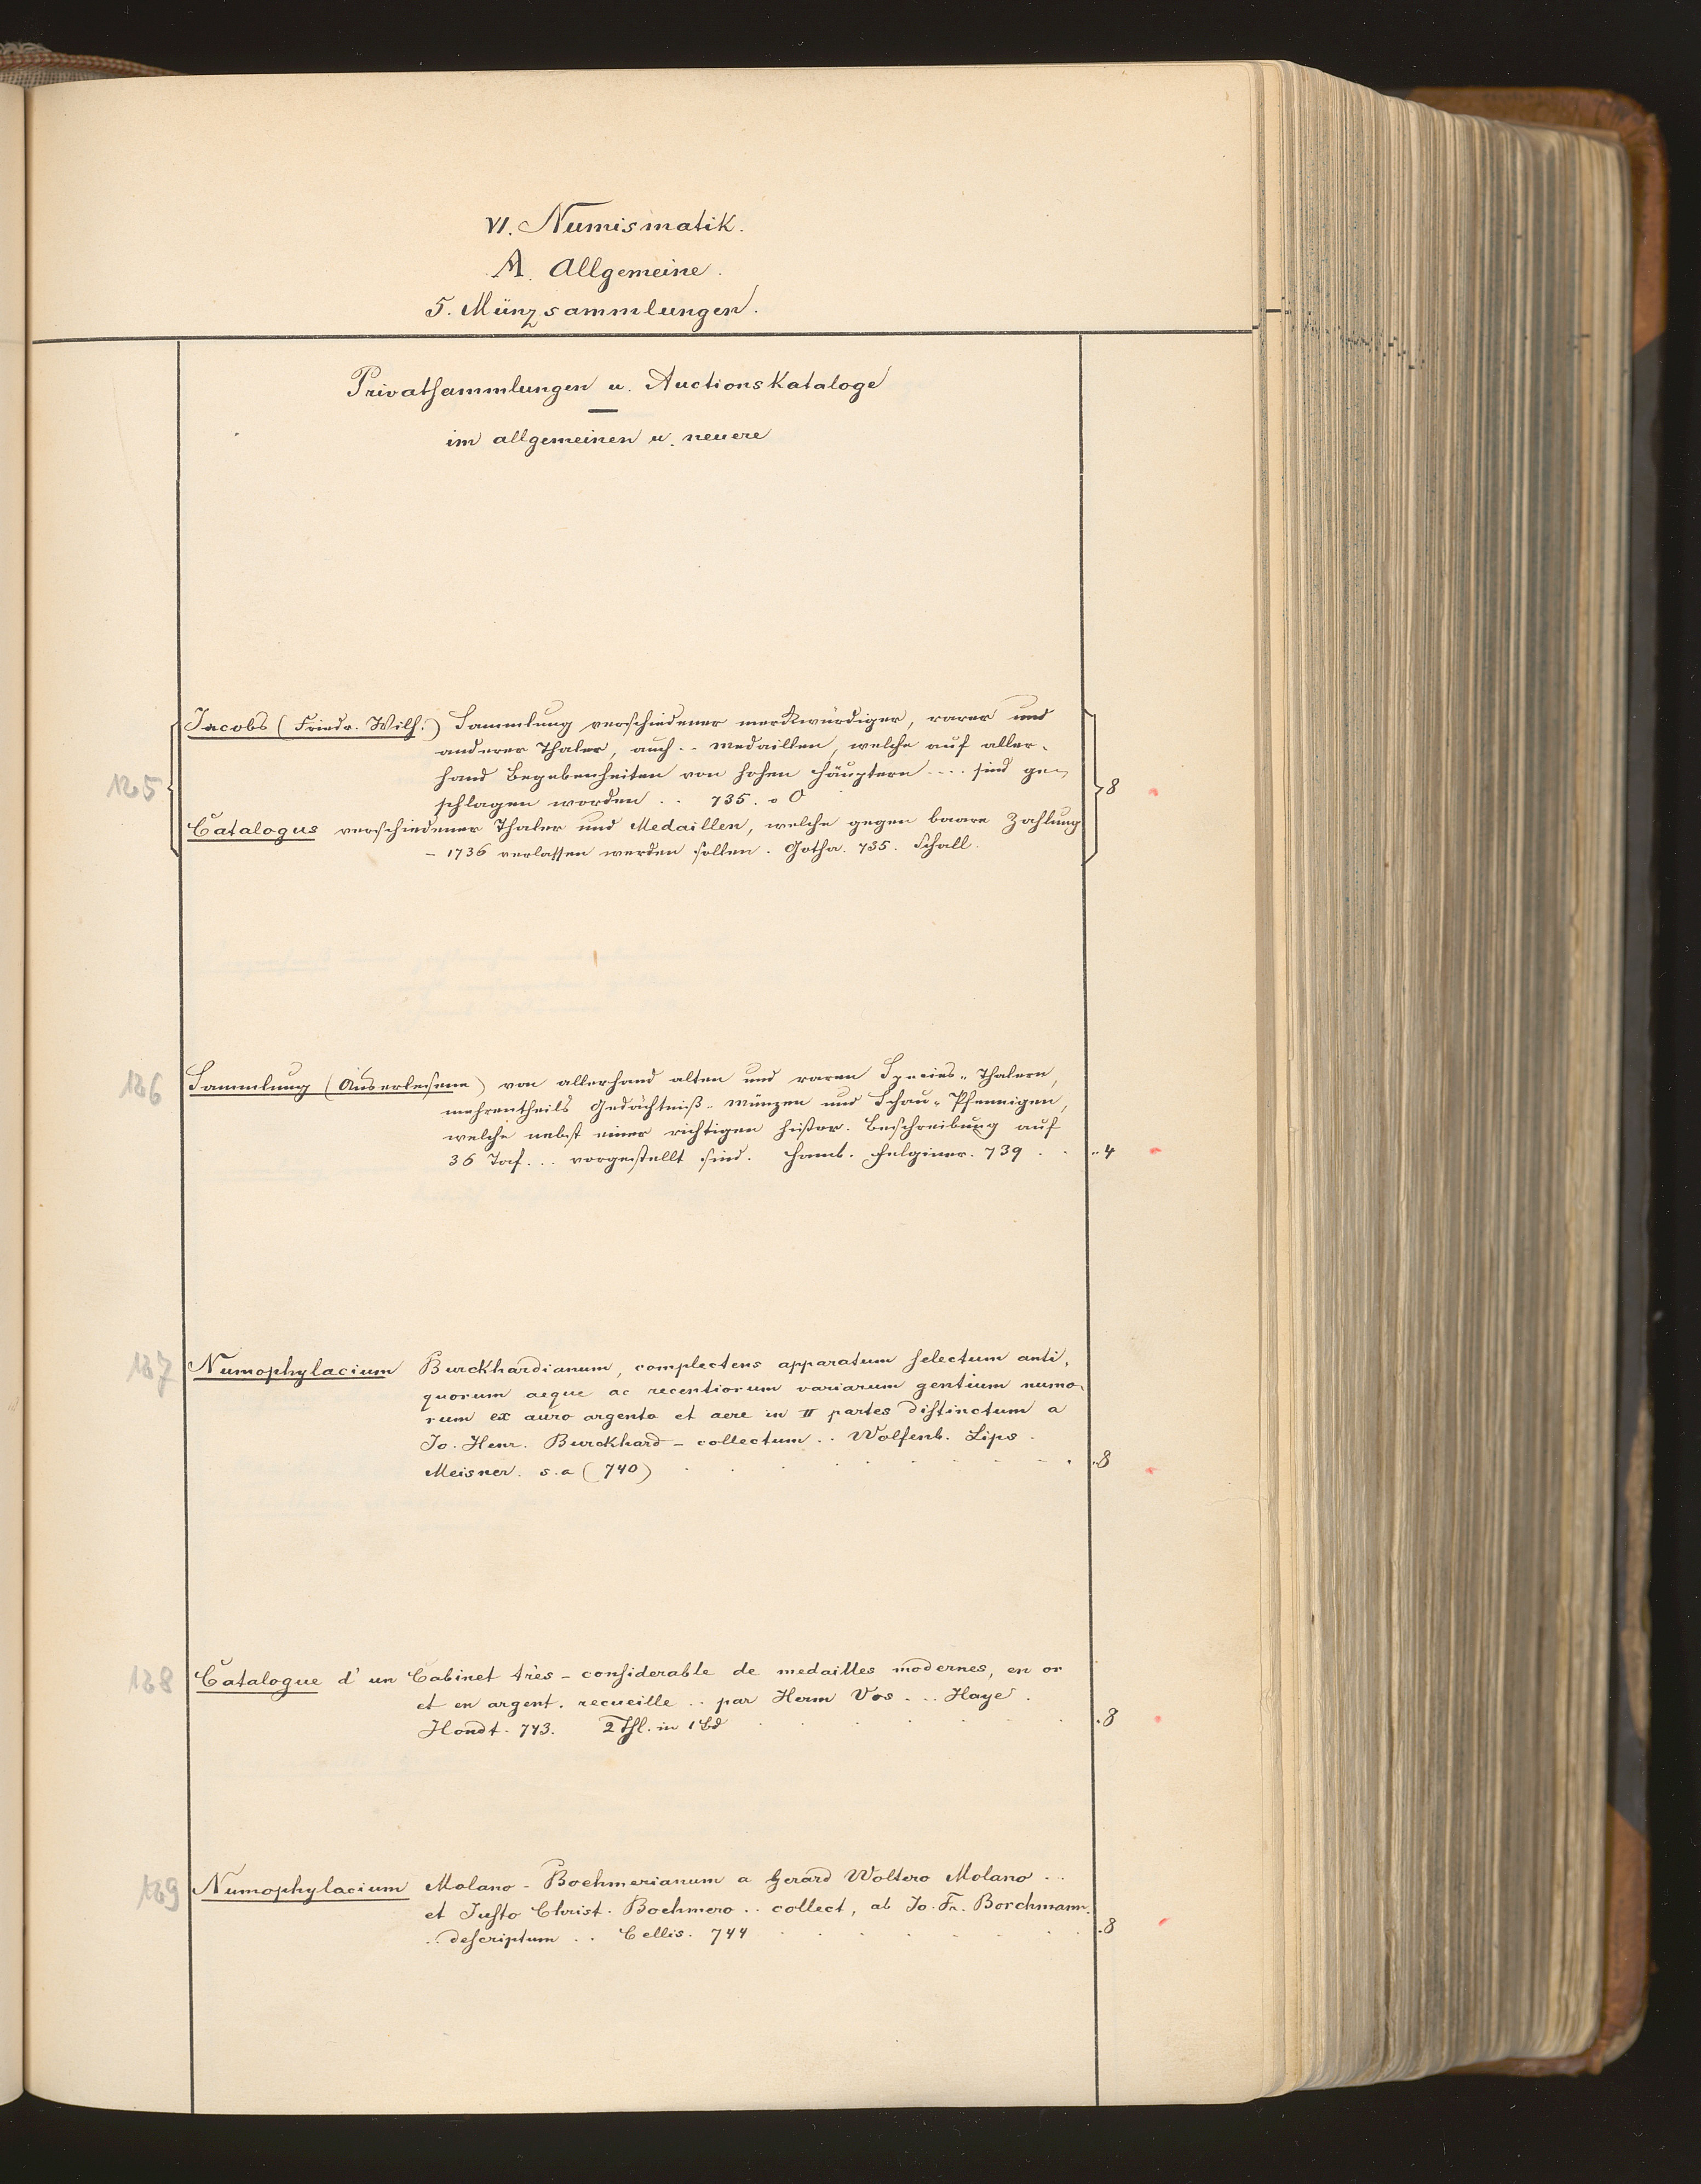 VI. Numismatik.
A. Allgemeine.
5. Münzsammlungen.
Privatsammlungen u. Auctionskataloge
im allgemeinen u. neuere
125
Jacobs (Friedr. Wilh.) Sammlung verschiedener merkwürdiger, rarer und
anderer Thaler, auch .. Medaillen, welche auf aller-
hand Begebenheiten von hohen Häuptern .... sind ge-
schlagen worden .. 735. o O
8
Catalogus verschiedener Thaler und Medaillen, welche gegen baare Zahlung
- 1736 verlassen werden sollen. Gotha. 735. Schall.
126
Sammlung (Auserlesene) von allerhand alten und raren Species-Thalern,
mehrentheils Gedächtniß-Münzen und Schau-Pfennigen,
welche nebst einer richtigen histor. Beschreibung auf
36 Taf... vorgestellt sind. Hamb. Felginer. 739 . . .. 4
127
Numophylacium Burckhardianum, complectens apparatum selectum anti-
quorum aeque ac recentiorum variarum gentium numo-
rum ex auro argento et aere in II partes distinctum a
Jo. Henr. Burckhard - collectum .. Wolfenb. Lips.
Meisner. s.a (740) . . . . . . . . 8
128
Catalogue d'un Cabinet très-considerable de medailles modernes, en or
et en argent. recueille .. par Herm Vos ... Haye.
Hondt. 743. 2 Thl. in 1 Bd . . . . . 8
129
Numophylacium Molano-Boehmerianum a Gerard Woltero Molano ..
et Justo Christ. Boehmero .. collect, ab Jo. Fr. Borchmann.
.. descriptum .. Cellis. 744 . . . . . . 8